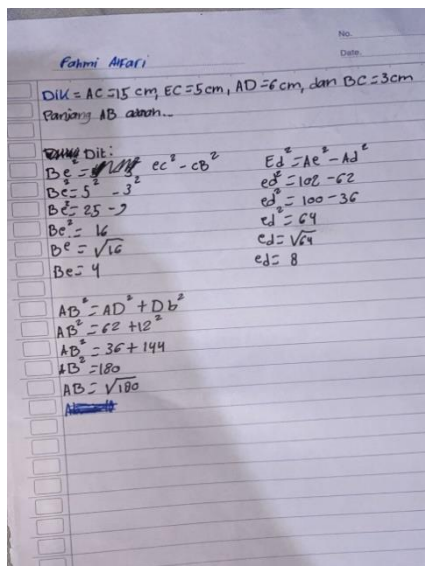 No.
Date.
Fahmi Alfari
Dik = AC = 15 cm, EC = 5 cm, AD = 6 cm, dan BC = 3 cm
Panjang AB adalah...
Dit:
Be² = ec² - cB²
Be² = 5² - 3²
Be² = 25 - 9
Be² = 16
Be = √16
Be = 4
Ed² = Ae² - Ad²
ed² = 102 - 62
ed² = 100 - 36
ed² = 64
ed = √64
ed = 8
AB² = AD² + Db²
AB² = 62 + 12²
AB² = 36 + 144
AB² = 180
AB = √180